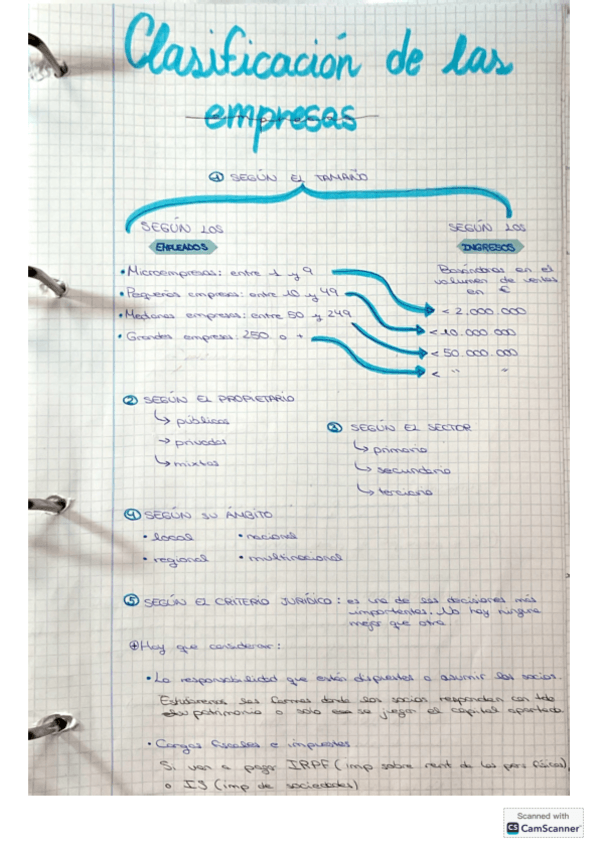 Clasificación de las
empresas
① SEGÚN EL TAMAÑO
SEGÚN LOS
EMPLEADOS
• Microempresas: entre 1 y 9
• Pequeñas empresas: entre 10 y 49
• Medianas empresas: entre 50 y 249
• Grandes empresas: 250 o +
SEGÚN LOS
INGRESOS
Basándonos en el
volumen de ventas
en €
< 2.000.000
< 10.000.000
< 50.000.000
< " "
② SEGÚN EL PROPIETARIO
↳ públicas
→ privadas
↳ mixtas
③ SEGÚN EL SECTOR
↳ primario
↳ secundario
↳ terciario
④ SEGÚN SU ÁMBITO
• local • nacional
• regional • multinacional
⑤ SEGÚN EL CRITERIO JURÍDICO: es una de las decisiones más
importantes. No hay ninguna
mejor que otra
⊕ Hay que considerar:
• La responsabilidad que están dispuestos a asumir los socios.
Estudiaremos las formas donde los socios respondan con todo
su patrimonio o solo se juegan el capital aportado.
• Cargas fiscales e impuestos
Si van a pagar IRPF (imp sobre rent de las pers físicas)
o IS (imp de sociedades)
Scanned with
CS CamScanner